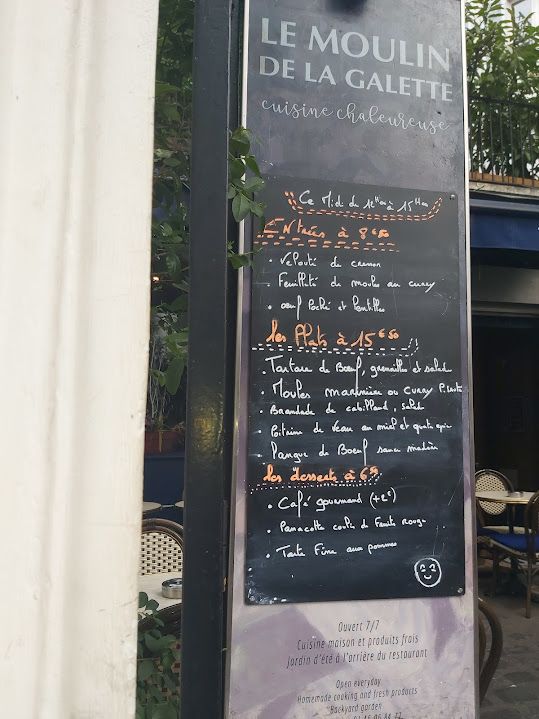 LE MOULIN
DE LA GALETTE
cuisine chaleureuse
Ce Midi du 12H00 à 15H00
Entrées à 8€50
• Velouté de cresson
• Feuilleté de moules au curry
• oeuf Poché et lentilles
les Plats à 15€50
• Tartare de Boeuf, grenailles et salade
• Moules marinière ou curry
• Brandade de cabillaud, salade
Poitrine de Veau au miel et quatre épice
Langue de Boeuf sauce madère
les desserts à 6
• Café gourmand (+2€)
• Panacotta coulis de Fruits Rouge
• Tarte Fine aux pommes
Ouvert 7/7
Cuisine maison et produits frais
Jardin d'été à l'arrière du restaurant
Open everyday
Homemade cooking and fresh products
Backyard garden